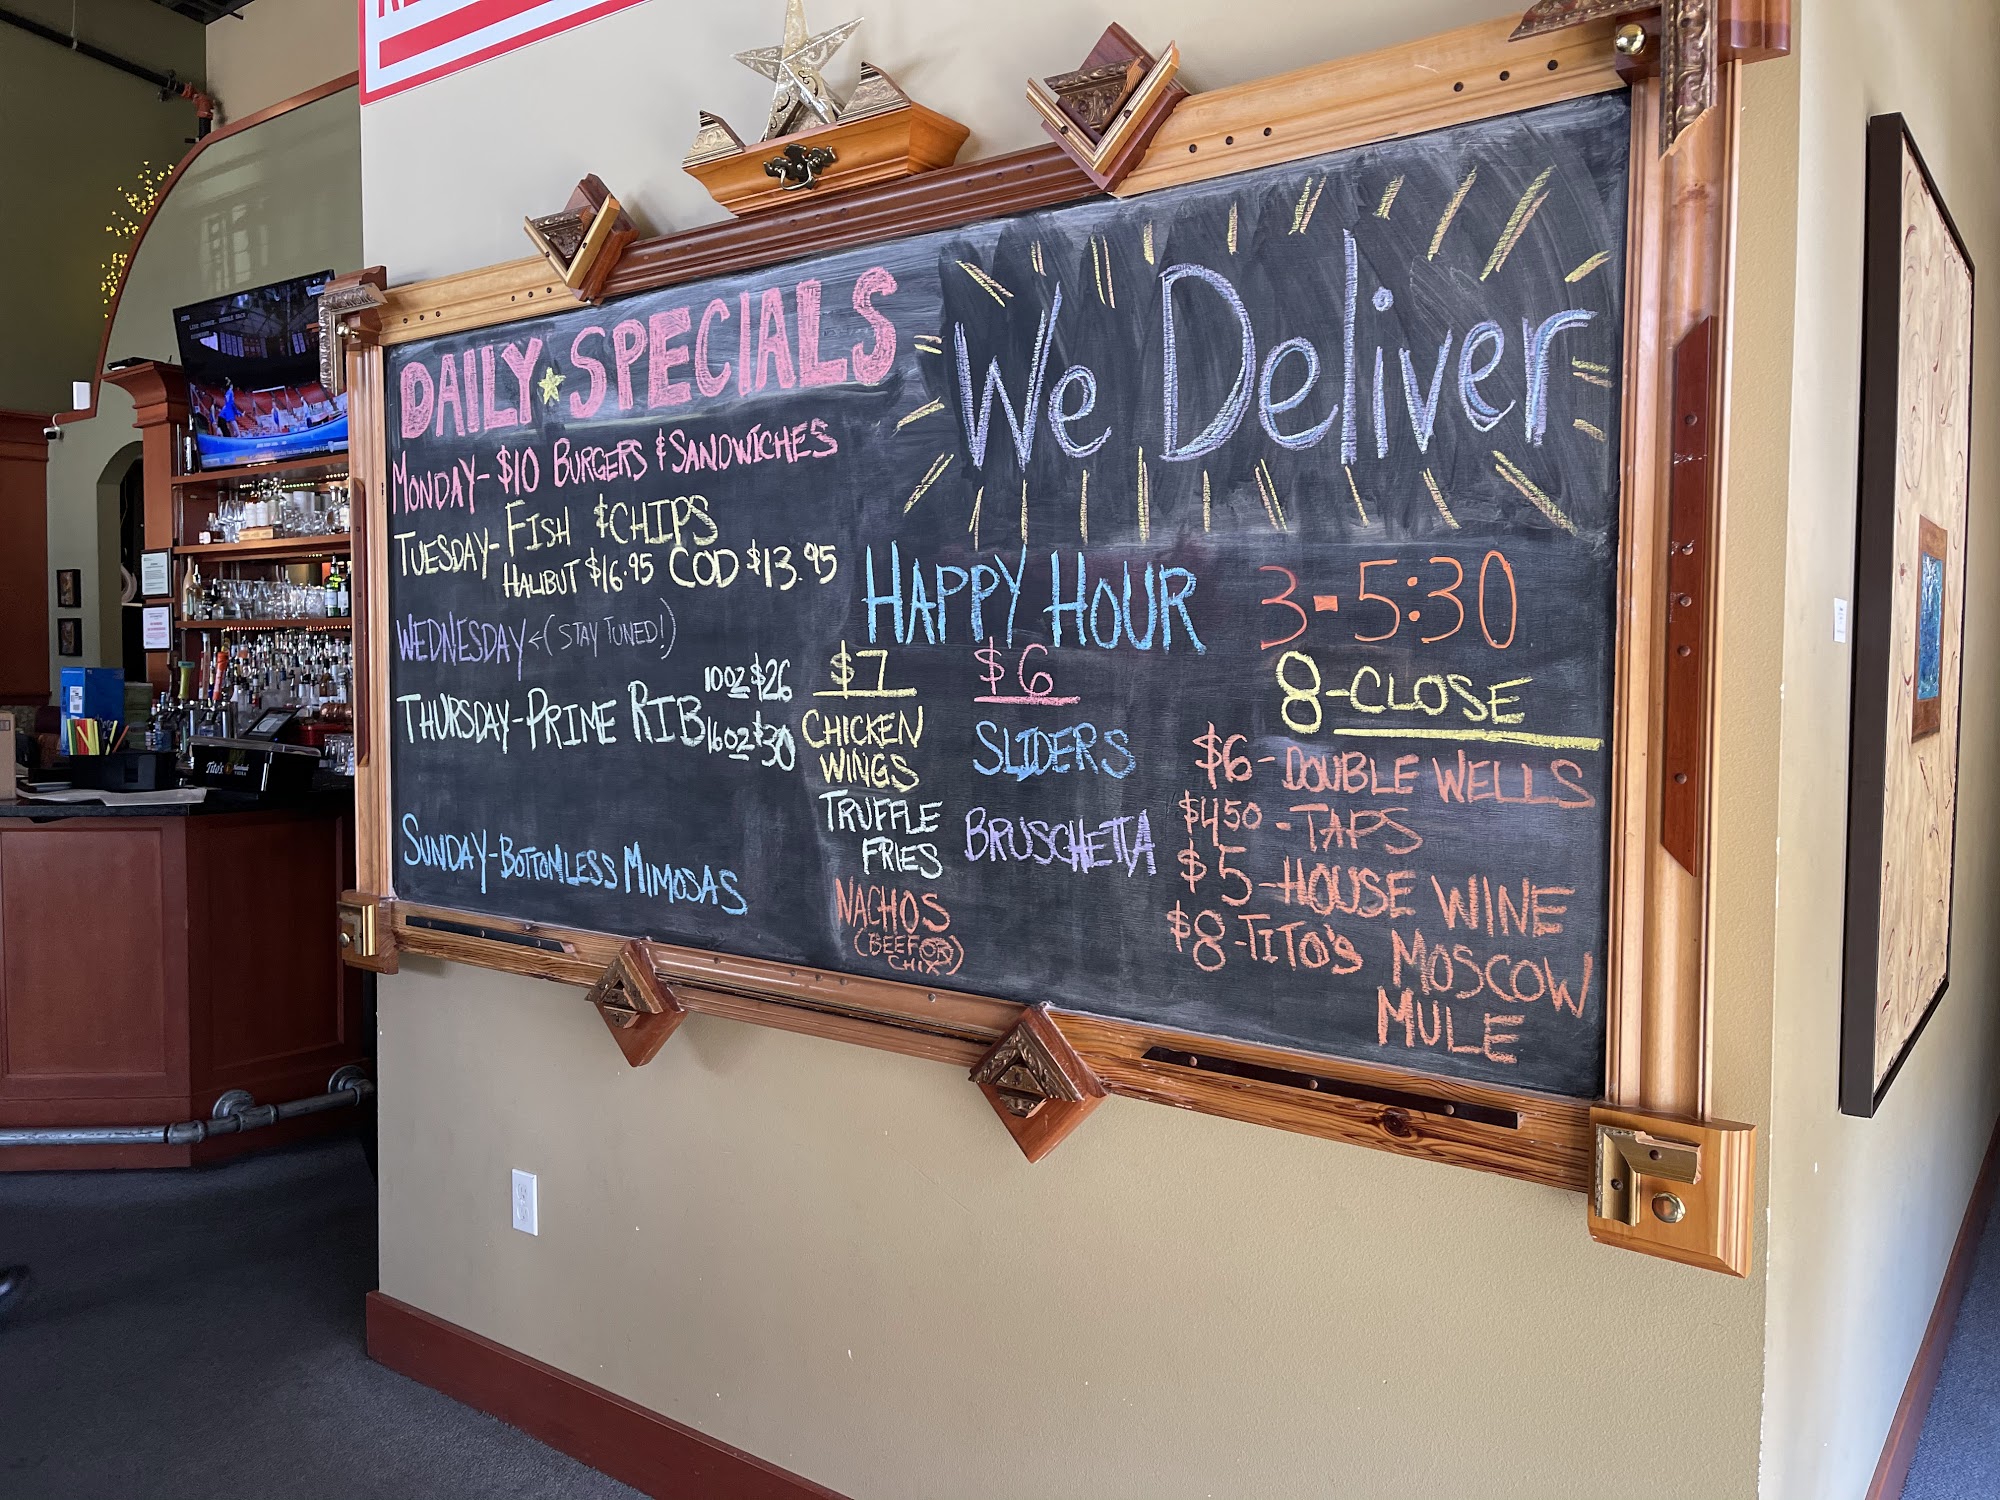 DAILY SPECIALS
MONDAY - $10 BURGERS & SANDWICHES
TUESDAY - FISH & CHIPS
HALIBUT $16.95 COD $13.95
WEDNESDAY ← (STAY TUNED!)
THURSDAY - PRIME RIB 10OZ $26
16OZ $30
SUNDAY - BOTTOMLESS MIMOSAS
We Deliver
HAPPY HOUR 3 - 5:30
8 - CLOSE
$7
CHICKEN
WINGS
TRUFFLE
FRIES
NACHOS
(BEEF OR
CHIX)
$6
SLIDERS
BRUSCHETTA
$6 - DOUBLE WELLS
$4.50 - TAPS
$5 - HOUSE WINE
$8 - TITO'S MOSCOW
MULE
Tito's Handmade
VODKA